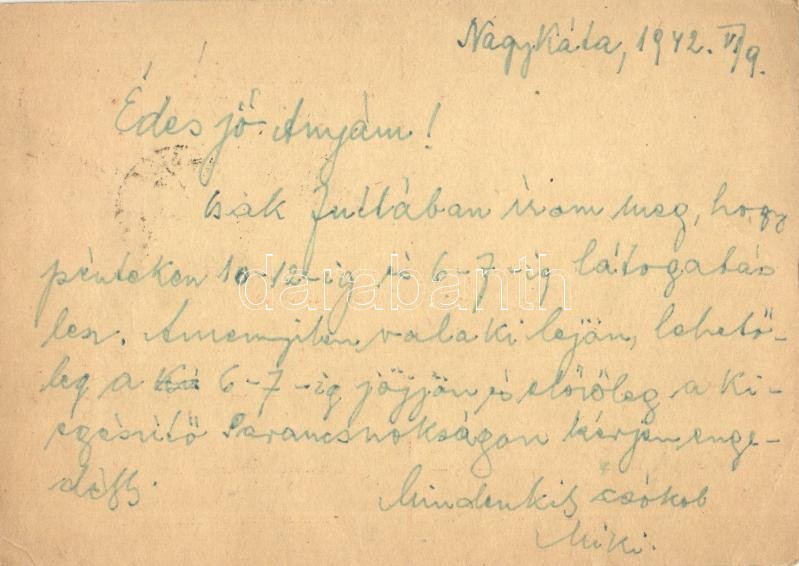 Nagykáta, 1942. VI/9.
Édes jó Anyám!
Csak futtában írom meg, hogy
pénteken 10-12-ig és 6-7-ig látogatás
lesz. Amennyiben valaki lejön, lehető-
leg a 6-7-ig jöjjön és előzőleg a ki-
egészítő Parancsnokságon kérjen enge-
délyt.
Mindenkit csókol
Miki.
darabanth